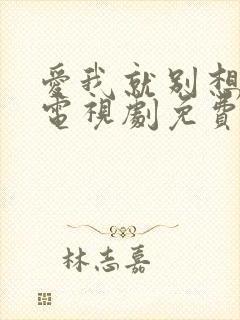 愛我就別想
電視劇免費
林志嘉